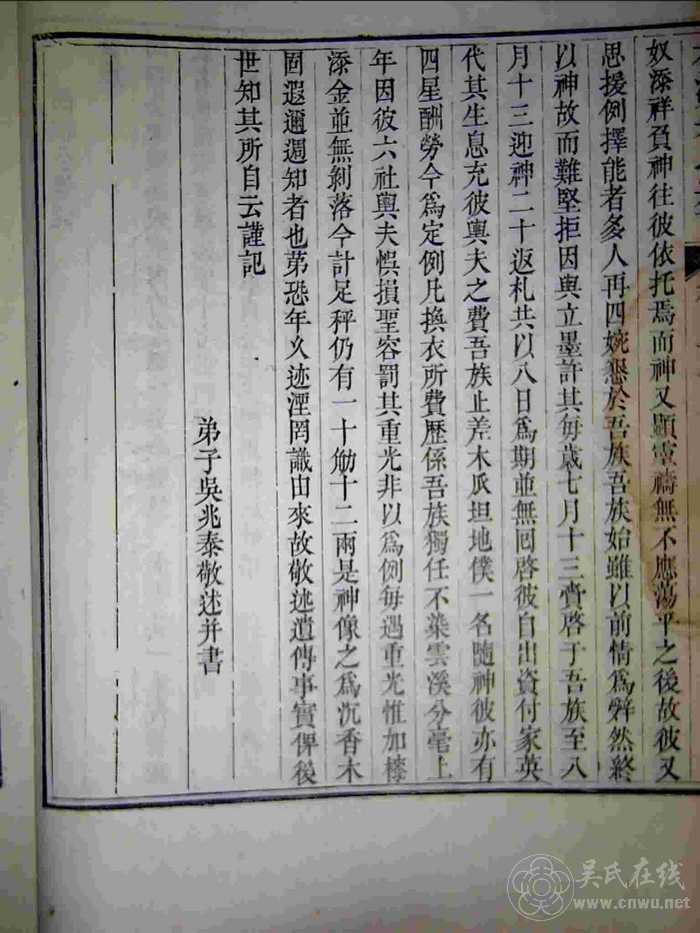 奴添祥負神往彼依托焉而神又顯霊禱無不應蕩平之後故彼又
思援例擇能者多人再四婉懇於吾族吾族始雖以前情為辤然終
以神故而難堅拒因與立墨許其毎歲七月十三賫啓于吾族至八
月十三迎神二十返札共以八日為期並無回啓彼自出資付家英
代其生息充彼輿夫之費吾族止差木瓜坦地僕一名隨神彼亦有
四星酬勞今為定例凡換衣所費歴係吾族獨任不染雲溪分毫上
年因彼六社輿夫悞損聖容罰其重光非以為例每遇重光惟加
添金並無剝落今計足秤仍有一十觔十二兩是神像之為沉香木
固遐邇週知者也第恐年久迹湮罔識由來故敬述遺傳事實俾後
世知其所自云謹記
弟子吳兆泰敬述并書
吴氏在线
www.cnwu.net